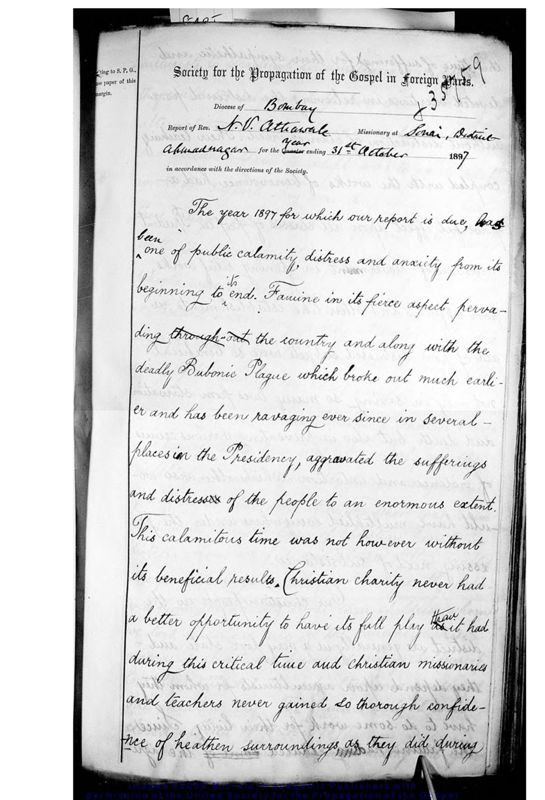 ing to S. P. G.,
ne paper of this
margin.
Society for the Propagation of the Gospel in Foreign Parts.
Diocese of Bombay
Report of Rev. N. V. Athawale Missionary at Sonai, District
Ahmadnagar for the year ending 31st October 1897
in accordance with the directions of the Society.
The year 1897 for which our report is due, has
been
one of public calamity, distress and anxiety from its
beginning to its end. Famine in its fierce aspect perva-
ding through-out the country and along with the
deadly Bubonic Plague which broke out much earli-
er and has been ravaging ever since in several-
places in the Presidency, aggravated the sufferings
and distress of the people to an enormous extent.
This calamitous time was not however without
its beneficial results. Christian charity never had
a better opportunity to have its full play than it had
during this critical time and christian missionaries
and teachers never gained so thorough confide-
nce of heathen surroundings, as they did during